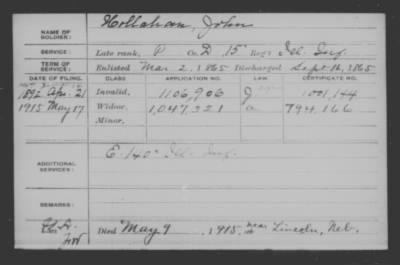 NAME OF SOLDIER: Hollahan, John
SERVICE: Late rank, P Co. D, 15 Reg't Ill. Inf.
TERM OF SERVICE: Enlisted Mar. 2, 1865 Discharged Sept. 16, 1865
DATE OF FILING. CLASS. APPLICATION NO. LAW. CERTIFICATE NO.
1892 Apr. 21 Invalid, 1,106,906 J 1001,144
1915 May 17 Widow, 1,047,321 a 794,166
Minor,
ADDITIONAL SERVICES: E. 140" Ill. Inf.
REMARKS:
Died May 9, 1915, near Lincoln, Neb.